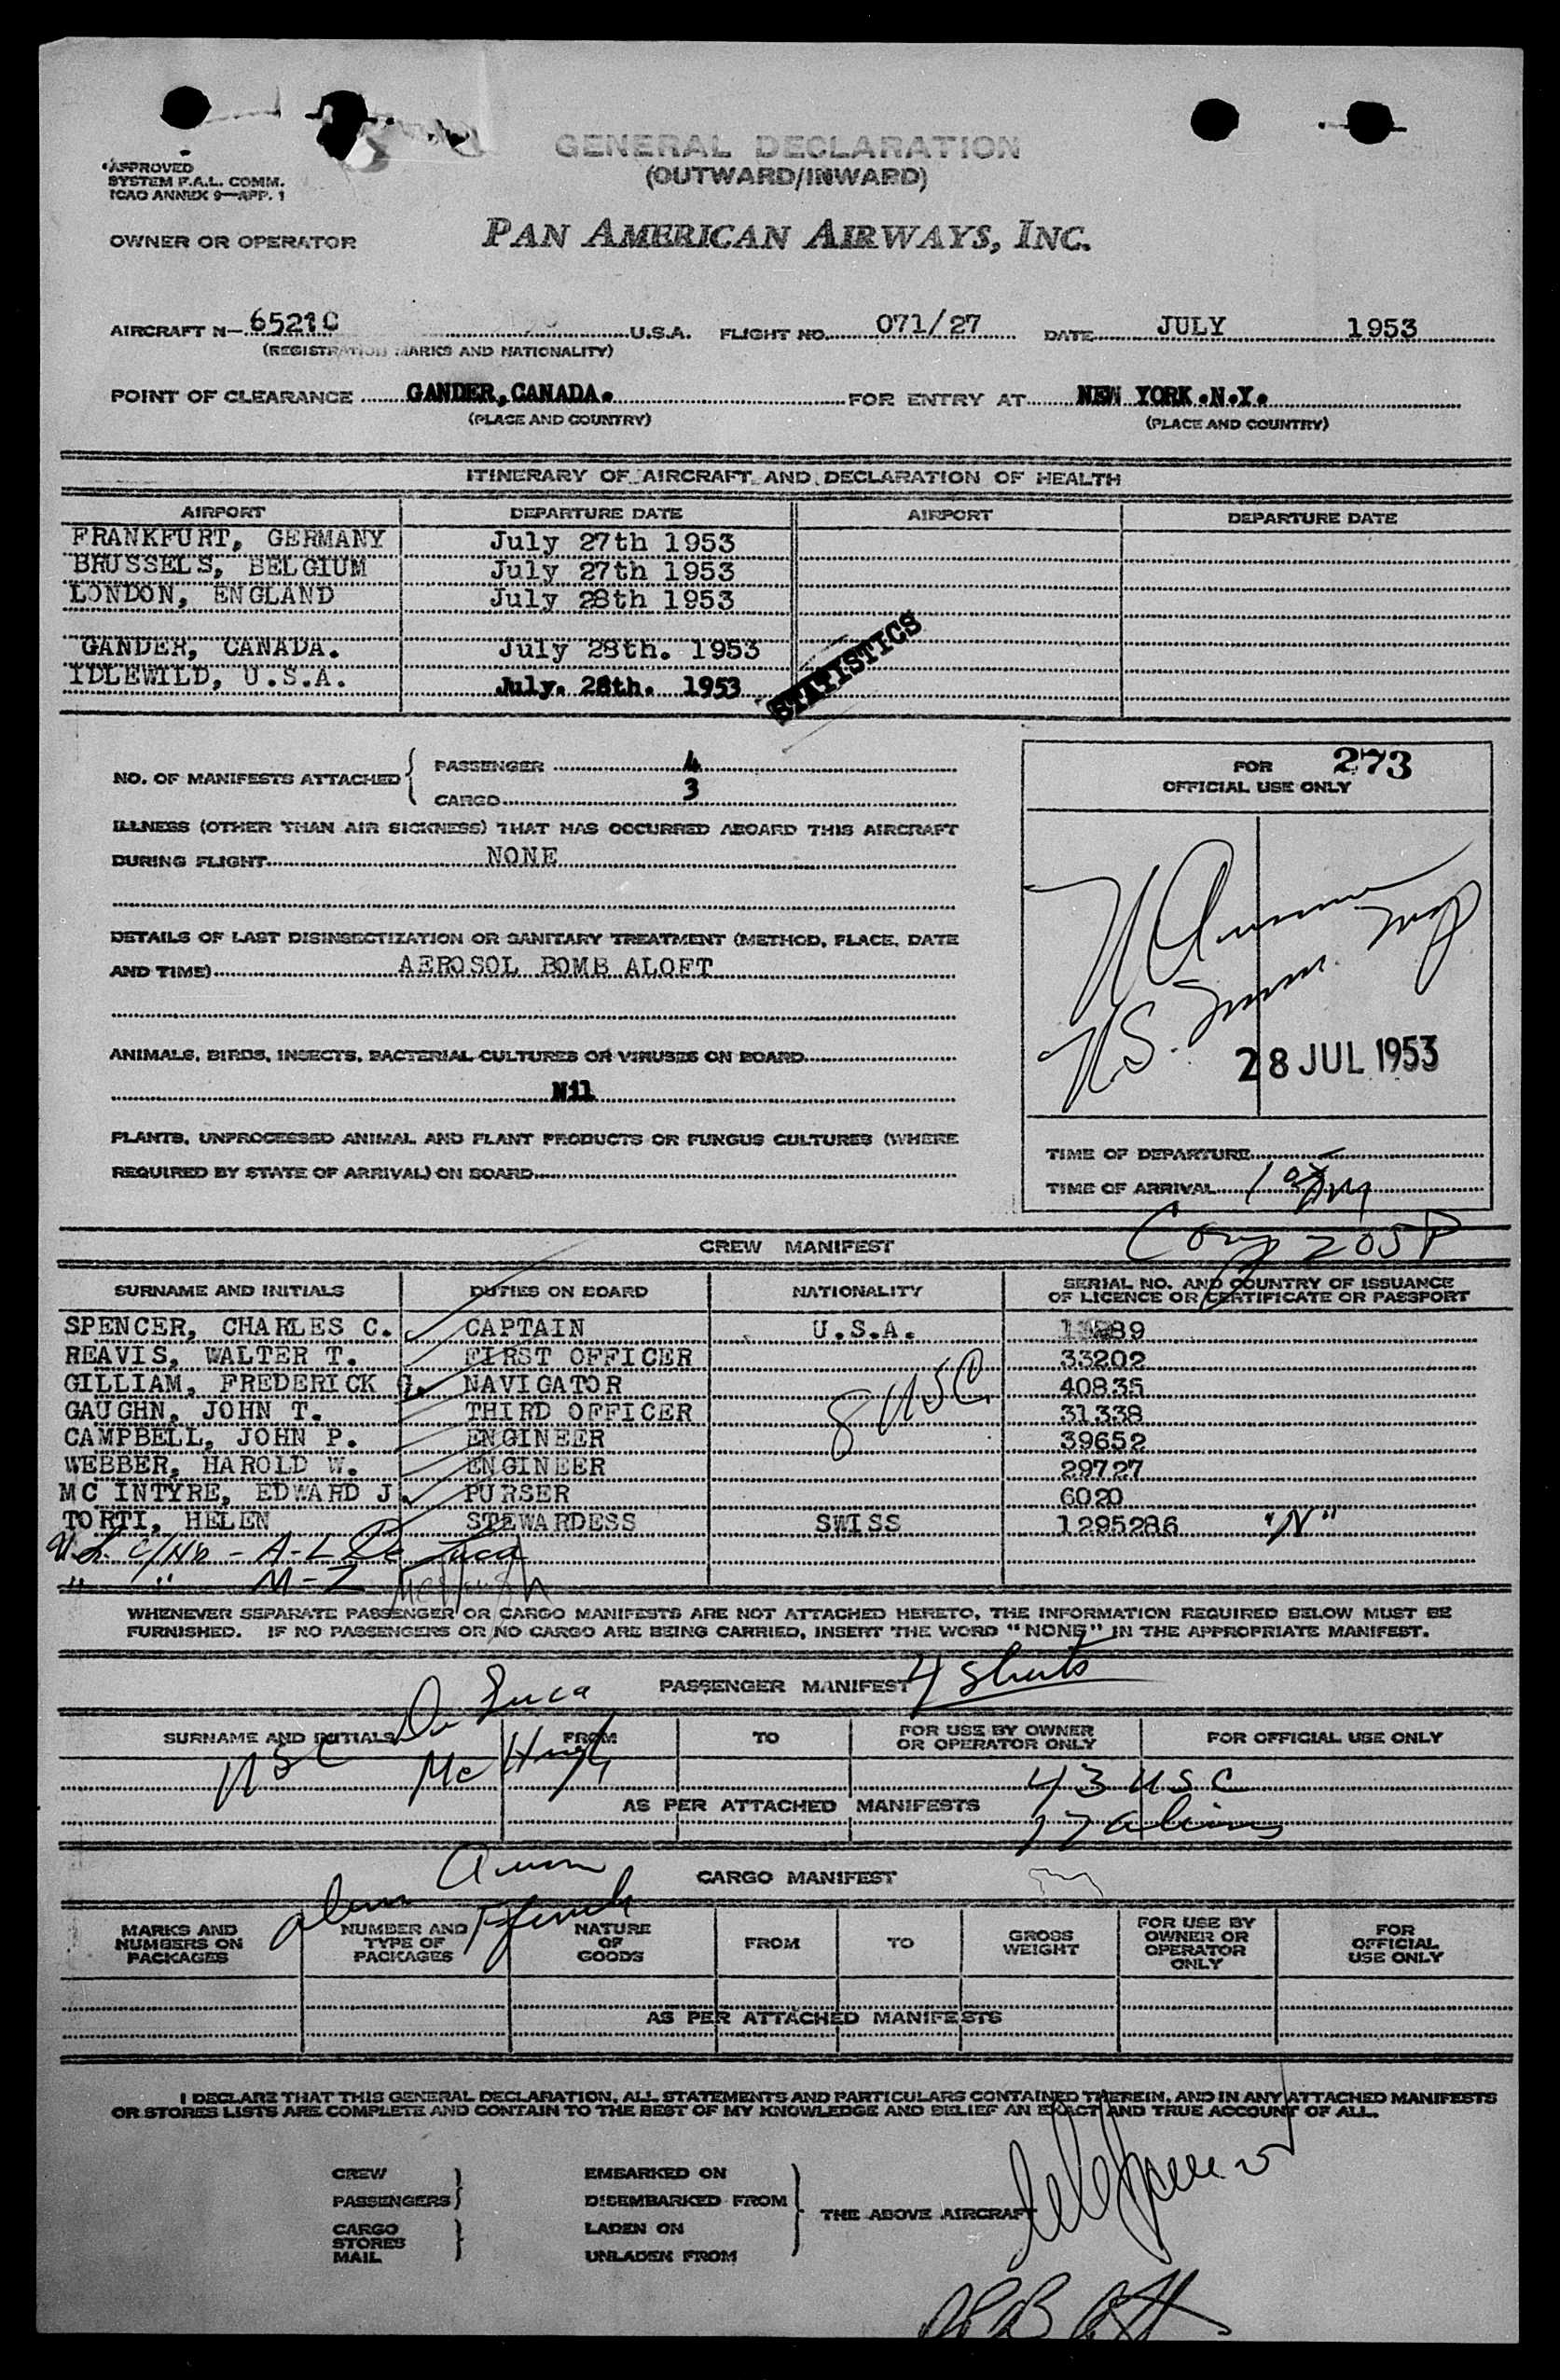 GENERAL DECLARATION
(OUTWARD/INWARD)
APPROVED
SYSTEM F.A.L. COMM.
ICAO ANNEX 9—APP. 1
OWNER OR OPERATOR PAN AMERICAN AIRWAYS, INC.
AIRCRAFT N— 6521C U.S.A. FLIGHT NO. 071/27 DATE JULY 1953
(REGISTRATION MARKS AND NATIONALITY)
POINT OF CLEARANCE GANDER, CANADA. FOR ENTRY AT NEW YORK.N.Y.
(PLACE AND COUNTRY) (PLACE AND COUNTRY)
ITINERARY OF AIRCRAFT AND DECLARATION OF HEALTH
AIRPORT DEPARTURE DATE AIRPORT DEPARTURE DATE
FRANKFURT, GERMANY July 27th 1953
BRUSSELS, BELGIUM July 27th 1953
LONDON, ENGLAND July 28th 1953
GANDER, CANADA. July 28th. 1953
IDLEWILD, U.S.A. July. 28th. 1953
STATISTICS
NO. OF MANIFESTS ATTACHED { PASSENGER 4
CARGO 3
FOR 273
OFFICIAL USE ONLY
ILLNESS (OTHER THAN AIR SICKNESS) THAT HAS OCCURRED ABOARD THIS AIRCRAFT
DURING FLIGHT NONE
DETAILS OF LAST DISINSECTIZATION OR SANITARY TREATMENT (METHOD, PLACE, DATE
AND TIME) AEROSOL BOMB ALOFT
ANIMALS, BIRDS, INSECTS, BACTERIAL CULTURES OR VIRUSES ON BOARD
Nil
28 JUL 1953
PLANTS, UNPROCESSED ANIMAL AND PLANT PRODUCTS OR FUNGUS CULTURES (WHERE
REQUIRED BY STATE OF ARRIVAL) ON BOARD
TIME OF DEPARTURE
TIME OF ARRIVAL
CREW MANIFEST
205P
SURNAME AND INITIALS DUTIES ON BOARD NATIONALITY SERIAL NO. AND COUNTRY OF ISSUANCE
OF LICENCE OR CERTIFICATE OR PASSPORT
SPENCER, CHARLES C. CAPTAIN U.S.A.
REAVIS, WALTER T. FIRST OFFICER 33202
GILLIAM, FREDERICK G. NAVIGATOR 40835
GAUGHN, JOHN T. THIRD OFFICER 31338
8 USC
CAMPBELL, JOHN P. ENGINEER 39652
WEBBER, HAROLD W. ENGINEER 29727
MC INTYRE, EDWARD J. PURSER 6020
TORTI, HELEN STEWARDESS SWISS 1295286 "N"
A-L De Luca
" " M-Z McHugh
WHENEVER SEPARATE PASSENGER OR CARGO MANIFESTS ARE NOT ATTACHED HERETO, THE INFORMATION REQUIRED BELOW MUST BE
FURNISHED. IF NO PASSENGERS OR NO CARGO ARE BEING CARRIED, INSERT THE WORD "NONE" IN THE APPROPRIATE MANIFEST.
PASSENGER MANIFEST 4 sheets
De Luca
SURNAME AND INITIALS FROM TO FOR USE BY OWNER
OR OPERATOR ONLY FOR OFFICIAL USE ONLY
USC McHugh 43 USC
AS PER ATTACHED MANIFESTS
17 aliens
CARGO MANIFEST
MARKS AND
NUMBERS ON
PACKAGES NUMBER AND
TYPE OF
PACKAGES NATURE
OF
GOODS FROM TO GROSS
WEIGHT FOR USE BY
OWNER OR
OPERATOR
ONLY FOR
OFFICIAL
USE ONLY
AS PER ATTACHED MANIFESTS
I DECLARE THAT THIS GENERAL DECLARATION, ALL STATEMENTS AND PARTICULARS CONTAINED THEREIN, AND IN ANY ATTACHED MANIFESTS
OR STORES LISTS ARE COMPLETE AND CONTAIN TO THE BEST OF MY KNOWLEDGE AND BELIEF AN EXACT AND TRUE ACCOUNT OF ALL.
CREW EMBARKED ON
PASSENGERS DISEMBARKED FROM
THE ABOVE AIRCRAFT
CARGO LADEN ON
STORES
MAIL UNLADEN FROM